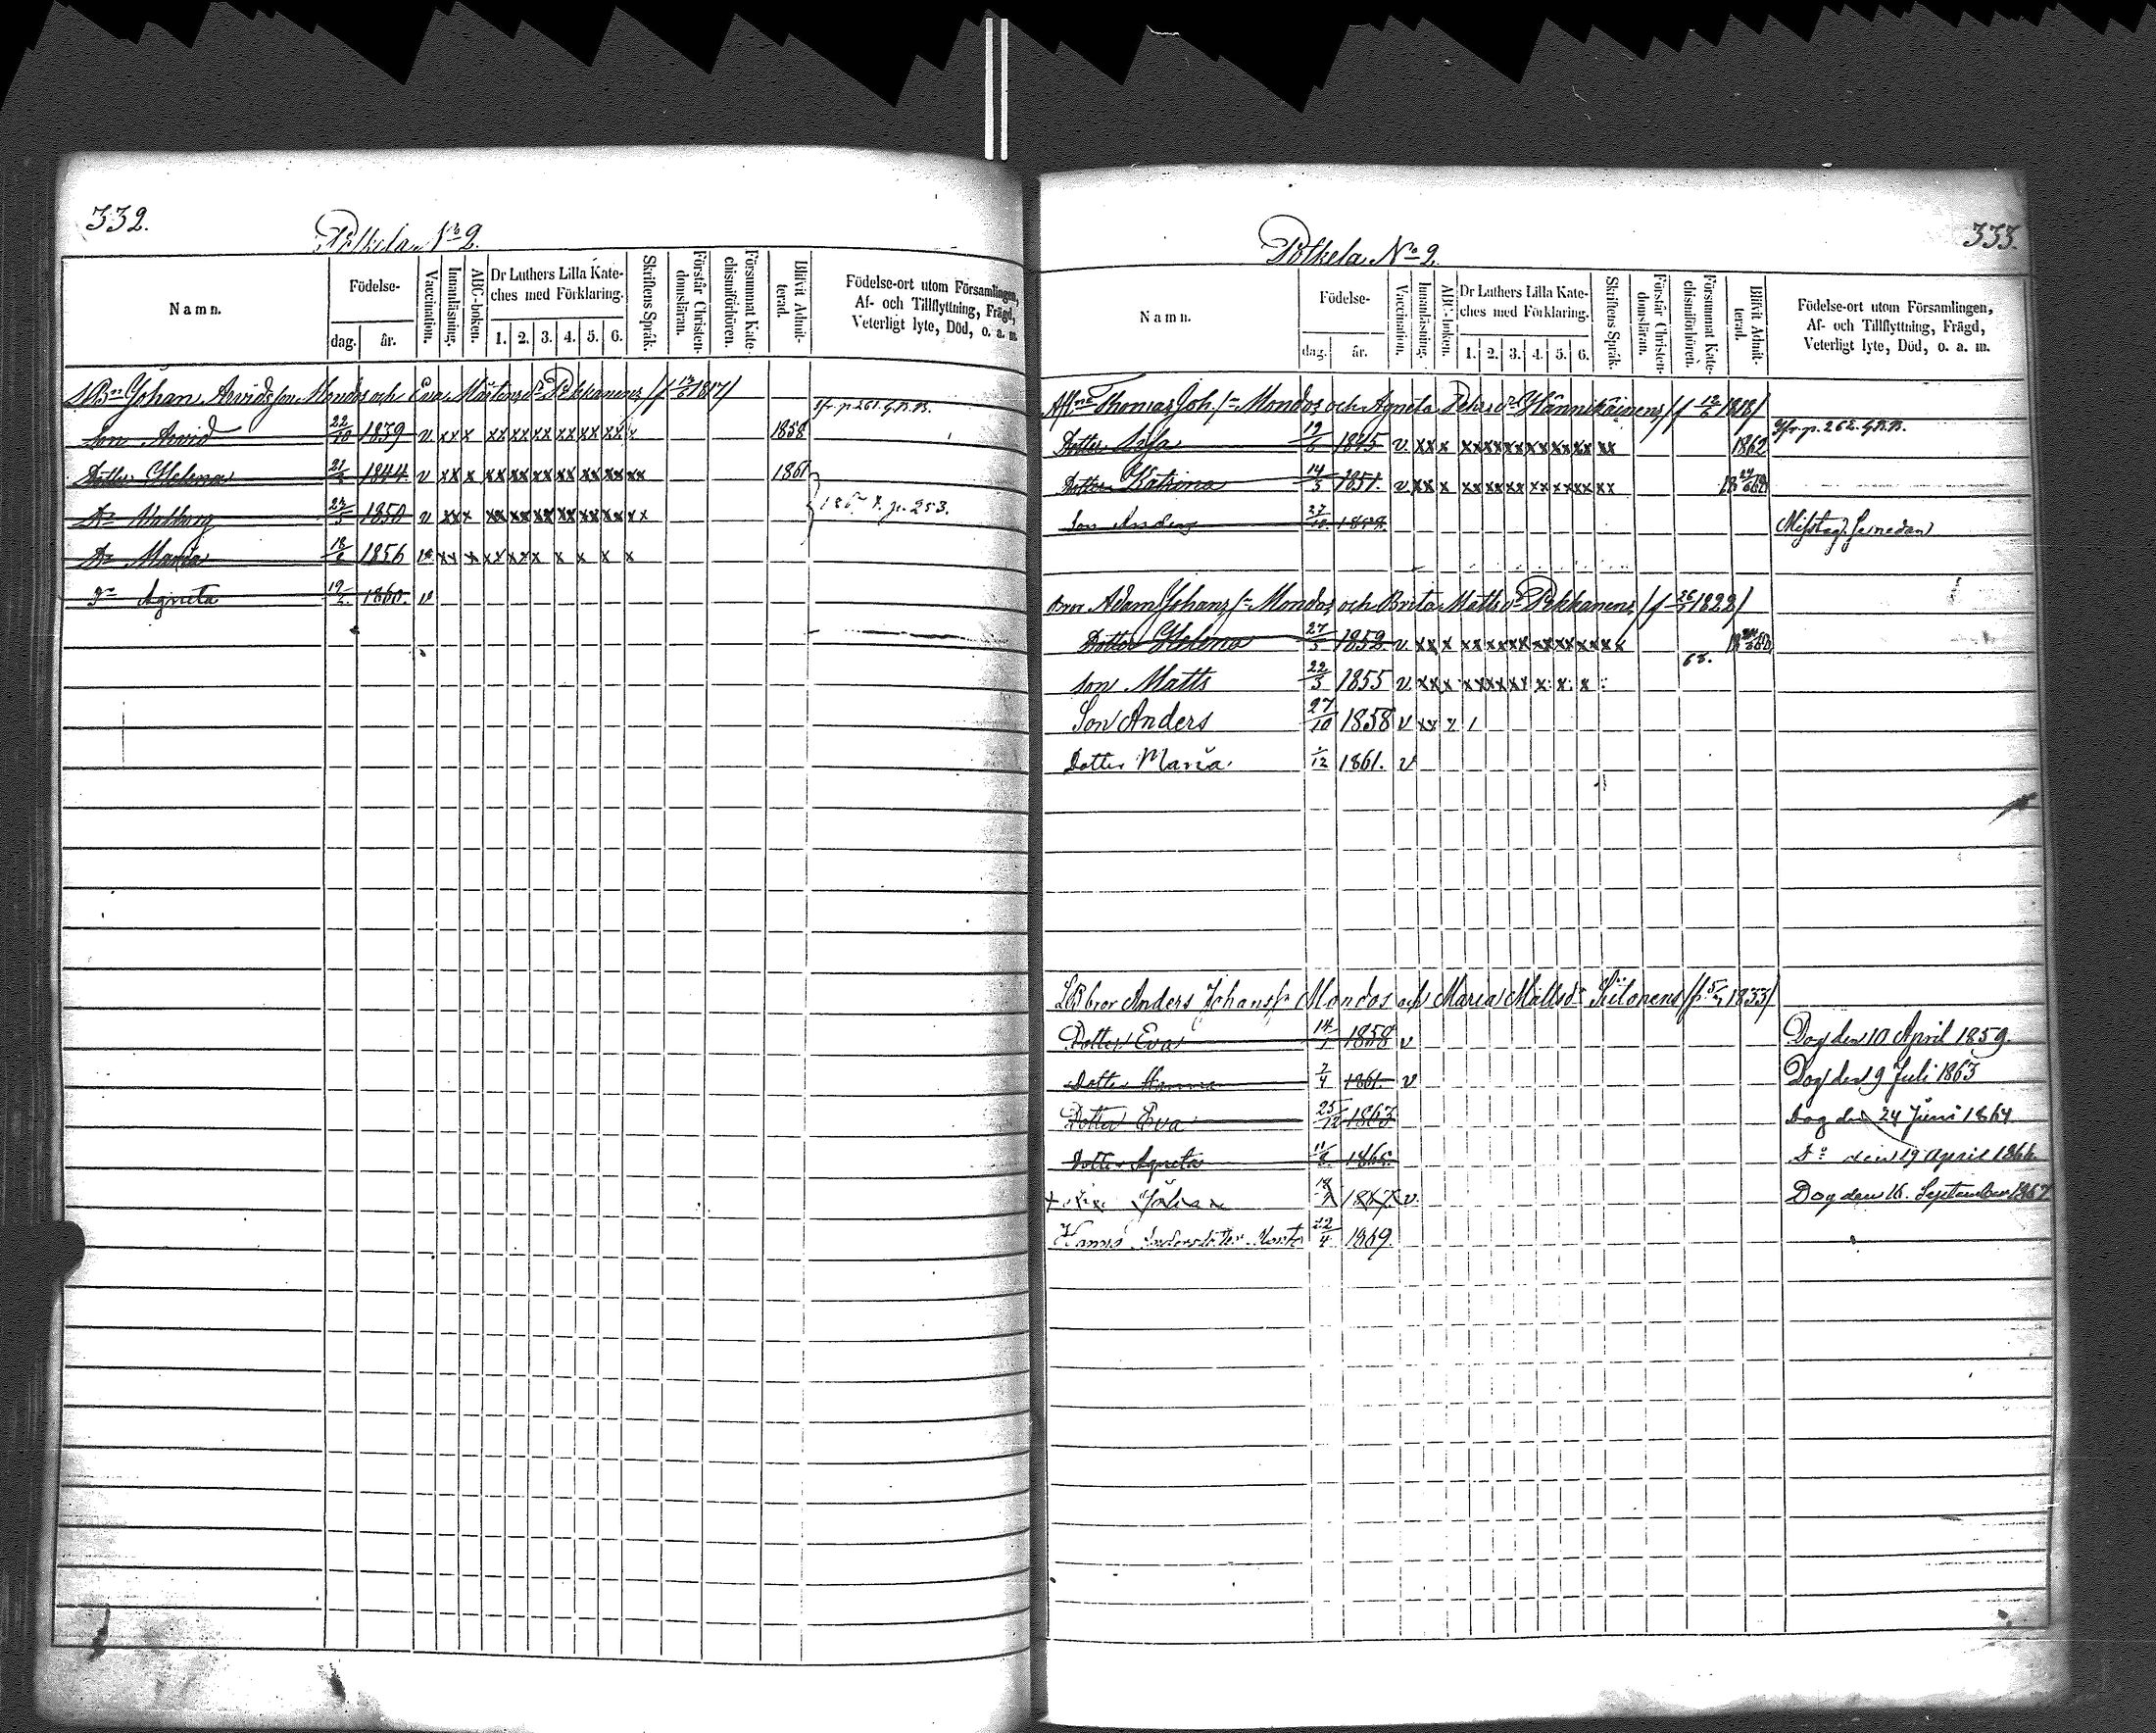 332.
Pötkela No 2.
Namn.
Födelse-
dag.
år.
Vaccination.
Innanläsning.
ABC-boken.
Dr Luthers Lilla Kate-
ches med Förklaring.
1. 2. 3. 4. 5. 6.
Skriftens Språk.
Förstår Christen-
domsläran.
Försummat Kate-
chismiförhören.
Blifvit Admit-
terad.
Födelse-ort utom Församlingen,
Af- och Tillflyttning, Frägd,
Veterligt lyte, Död, o. a. m.
Johan Arvidsson Mondos och Eva Mårtensdr Pekkanens 1817/
Son Arvid 22/10 1839 v xx x xx xx xx xx xx xx x 1858
Dotter Helena 1844 v xx x xx xx xx xx xx xx xx 1861
Dr Walborg 1850 v xx x xx xx xx xx xx xx xx p. 253.
Dr Maria 18/6 1856 xx x xx xx x x x x x
Dr Agneta 1860. v
333.
Pötkela No 2.
Namn.
Födelse-
dag.
år.
Vaccination.
Innanläsning.
ABC-boken.
Dr Luthers Lilla Kate-
ches med Förklaring.
1. 2. 3. 4. 5. 6.
Skriftens Språk.
Förstår Christen-
domsläran.
Försummat Kate-
chismiförhören.
Blifvit Admit-
terad.
Födelse-ort utom Församlingen,
Af- och Tillflyttning, Frägd,
Veterligt lyte, Död, o. a. m.
Thomas Joh.s. Mondos och Agneta Pehrsdr Hännikäinens 1818/
p. 262.
Dotter 19/6 1845 v. xx x xx xx xx xx xx xx xx 1862
Dotter Katrina 14/3 1851. v xx x xx xx xx xx xx xx xx
Son Anders 27/10
Bror Adam Johans s. Mondos och Brita Mattsdr Pekkanens 1822/
Dotter Helena 27/5 1852 v. xx x xx xx xx xx xx xx xx
68.
Son Matts 22/3 1855 v. xx x xx xx xx x x x
Son Anders 27/10 1858 v xx x 1
Dotter Maria 1861. v
Anders Johanss. Mondos och Maria Mattsdr Siitonens 1833/
Dotter Eva 1858 v Dog den 10 April 1859.
Dotter 2/4 1861. v Dog den 9 Juli 1863
Dotter Eva 25/12 1863 Dog den 24 Juni 1864
Dotter Agneta Do den 19 April 1866.
Johan 1867. v. Dog den 16. September 1867
Andersdotter 22/4 1869.